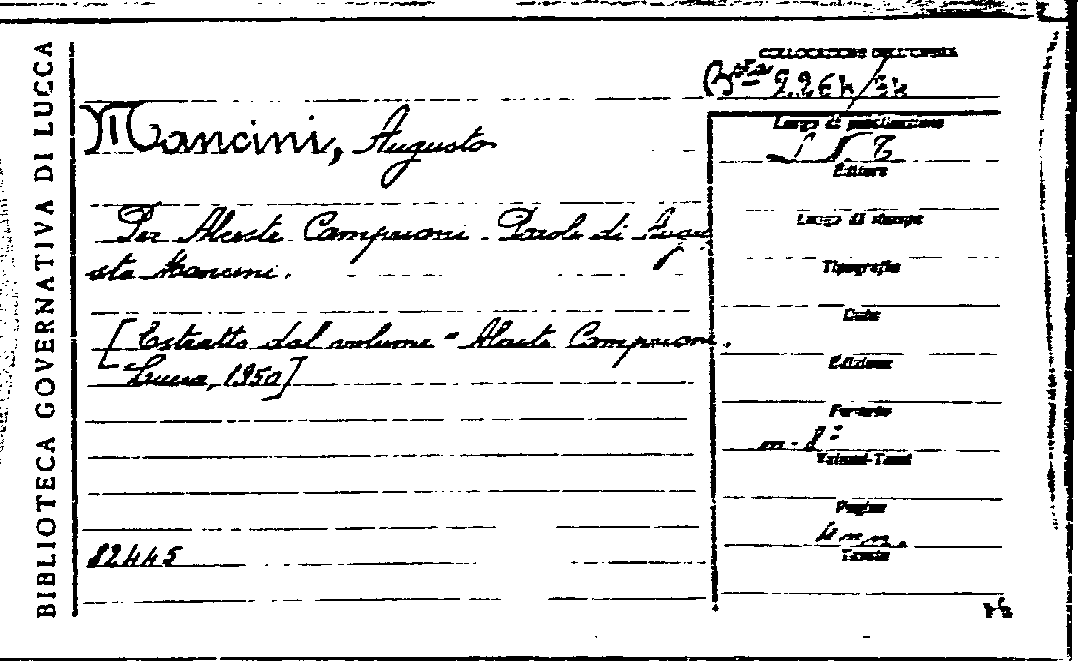 BIBLIOTECA GOVERNATIVA DI LUCCA
COLLOCAZIONE DELL'OPERA
Mancini, Augusto
Per Alceste Camprioni. Parole di Augu
sto Mancini.
[Estratto dal volume "Alceste Camprioni.
Lucca, 1950]
82445
Luogo di pubblicazione
S N T
Editore
Luogo di stampa
Tipografia
Data
Edizione
Formato
in-8º
Volumi-Tomi
Pagine
4 nn.
Tavole